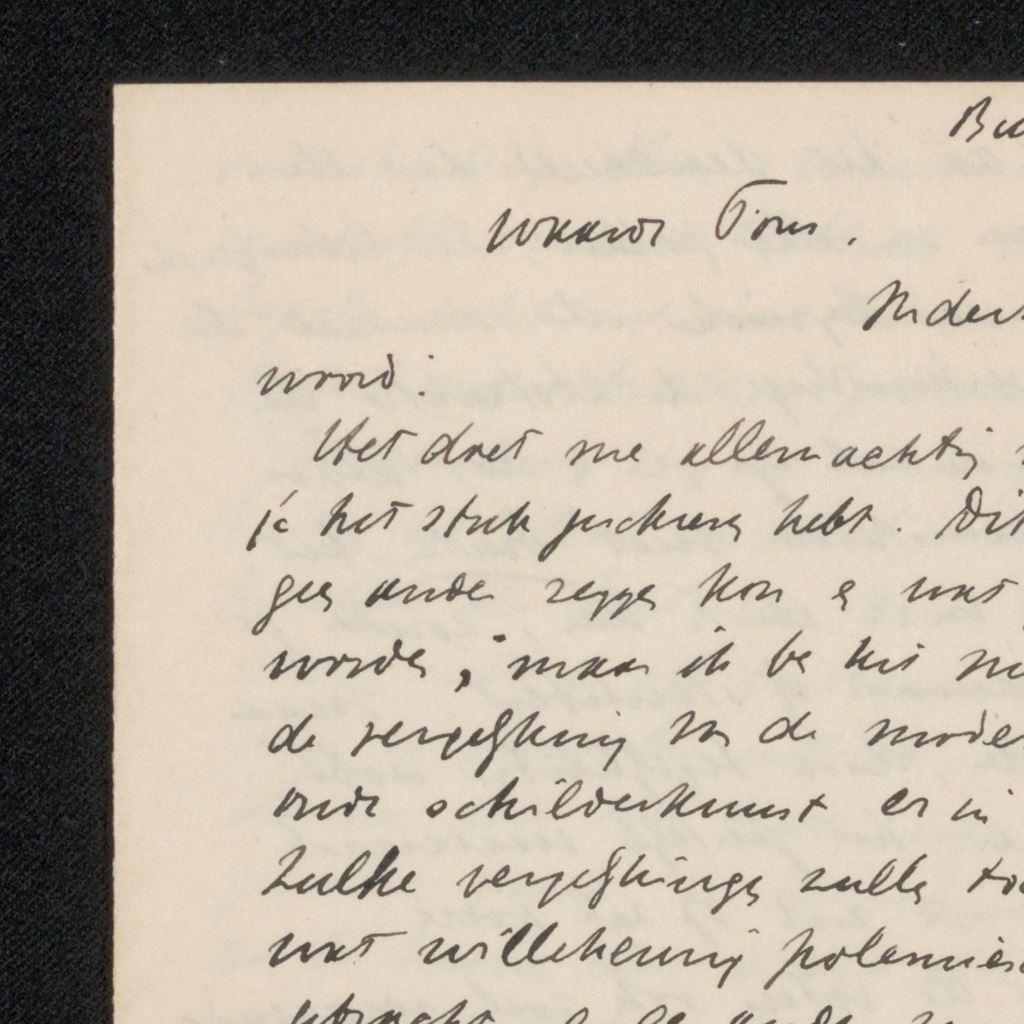 Bu
waarde Tom.
woord.
Het doet me allemachtig
je het stuk gelezen hebt. Dit
geen ander zeggen kon en wat
worden, maar ik be het
de vergelijking van de moder
oude schilderkunst er in
Zulke vergelijkingen zullen
wat willekeurig polemies